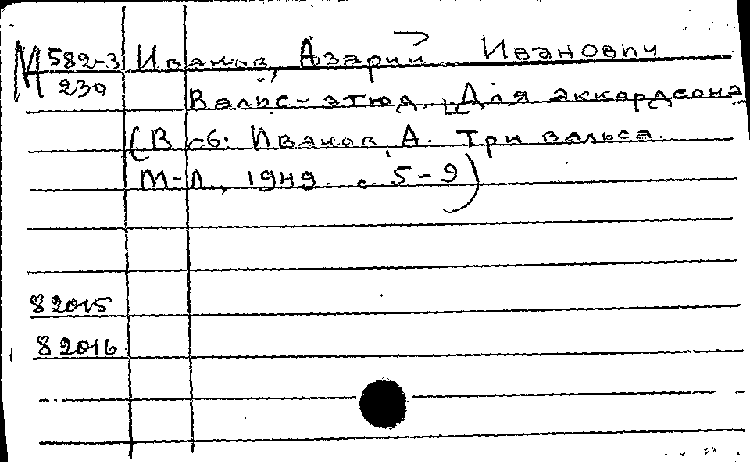 М 582-3 Иванов, Азарий Иванович
239 Вальс-этюд. [Для аккордеона
(В сб: Иванов, А. Три вальса.
М-Л., 1949. с 5-9)
82015
82016